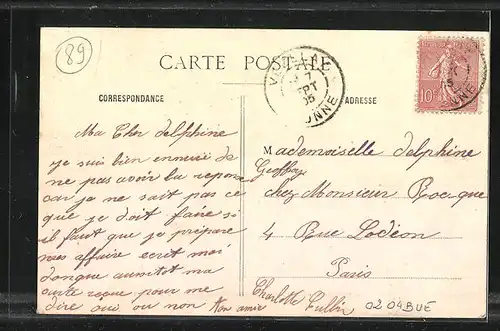 89
CARTE POSTALE
CORRESPONDANCE
ADRESSE
7
SEPT
05
YONNE
10
Ma Cher delphine
je suis bien ennuié de
ne pas avoir la repone
car je ne sait pas ce
que je doit faire si
il faut que je prépare
mes affaire ecrit moi
donque aussitot ma
carte reçue pour me
dire oui ou non
ton amie
Charlotte
Mademoiselle delphine
Geoffroy
chez Monsieur Rocque
4 Rue Lodéon
Paris
02 04 BUE